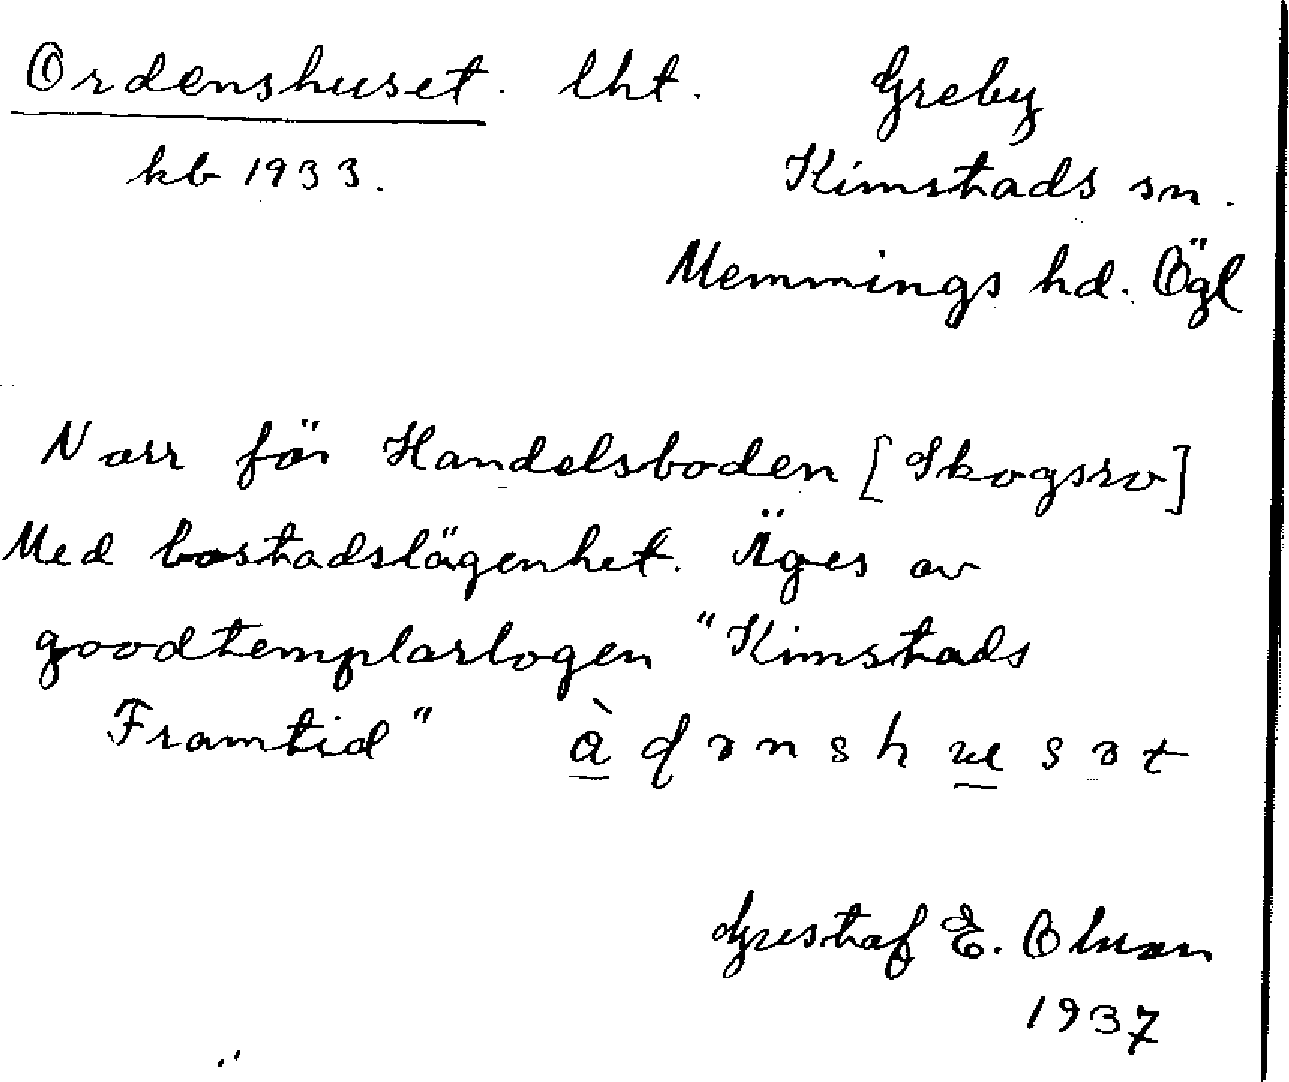 Ordenshuset. lht. Greby
kb 1933. Kimstads sn.
Memmings hd. Ögl
Norr för Handelsboden [Skogsro]
Med bostadslägenhet. Äges av
goodtemplarlogen "Kimstads
Framtid" 
Gustaf E. Olsson
1937